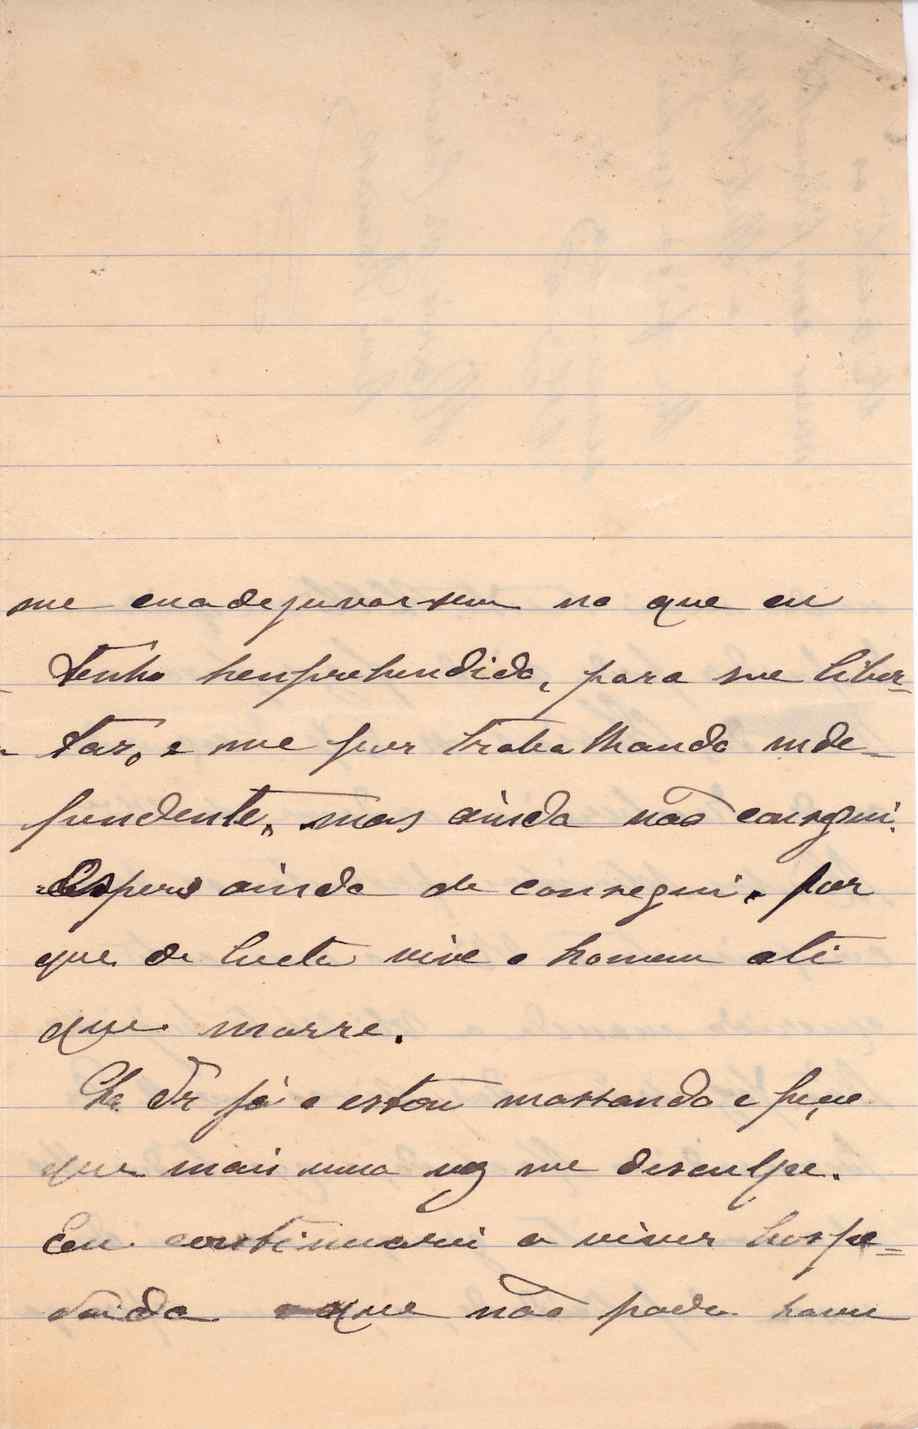 me no que eu
tenho henprehendido, para me liber-
tar, e me por trabalhando inde-
pendente, mas ainda não consegui.
Espero ainda de consegui. por
que de lucta vive o homem ate
que morre.
Dr já o estou massando e peço
que mais uma vez me desculpe.
Eu continuarei a viver
que não pode haver